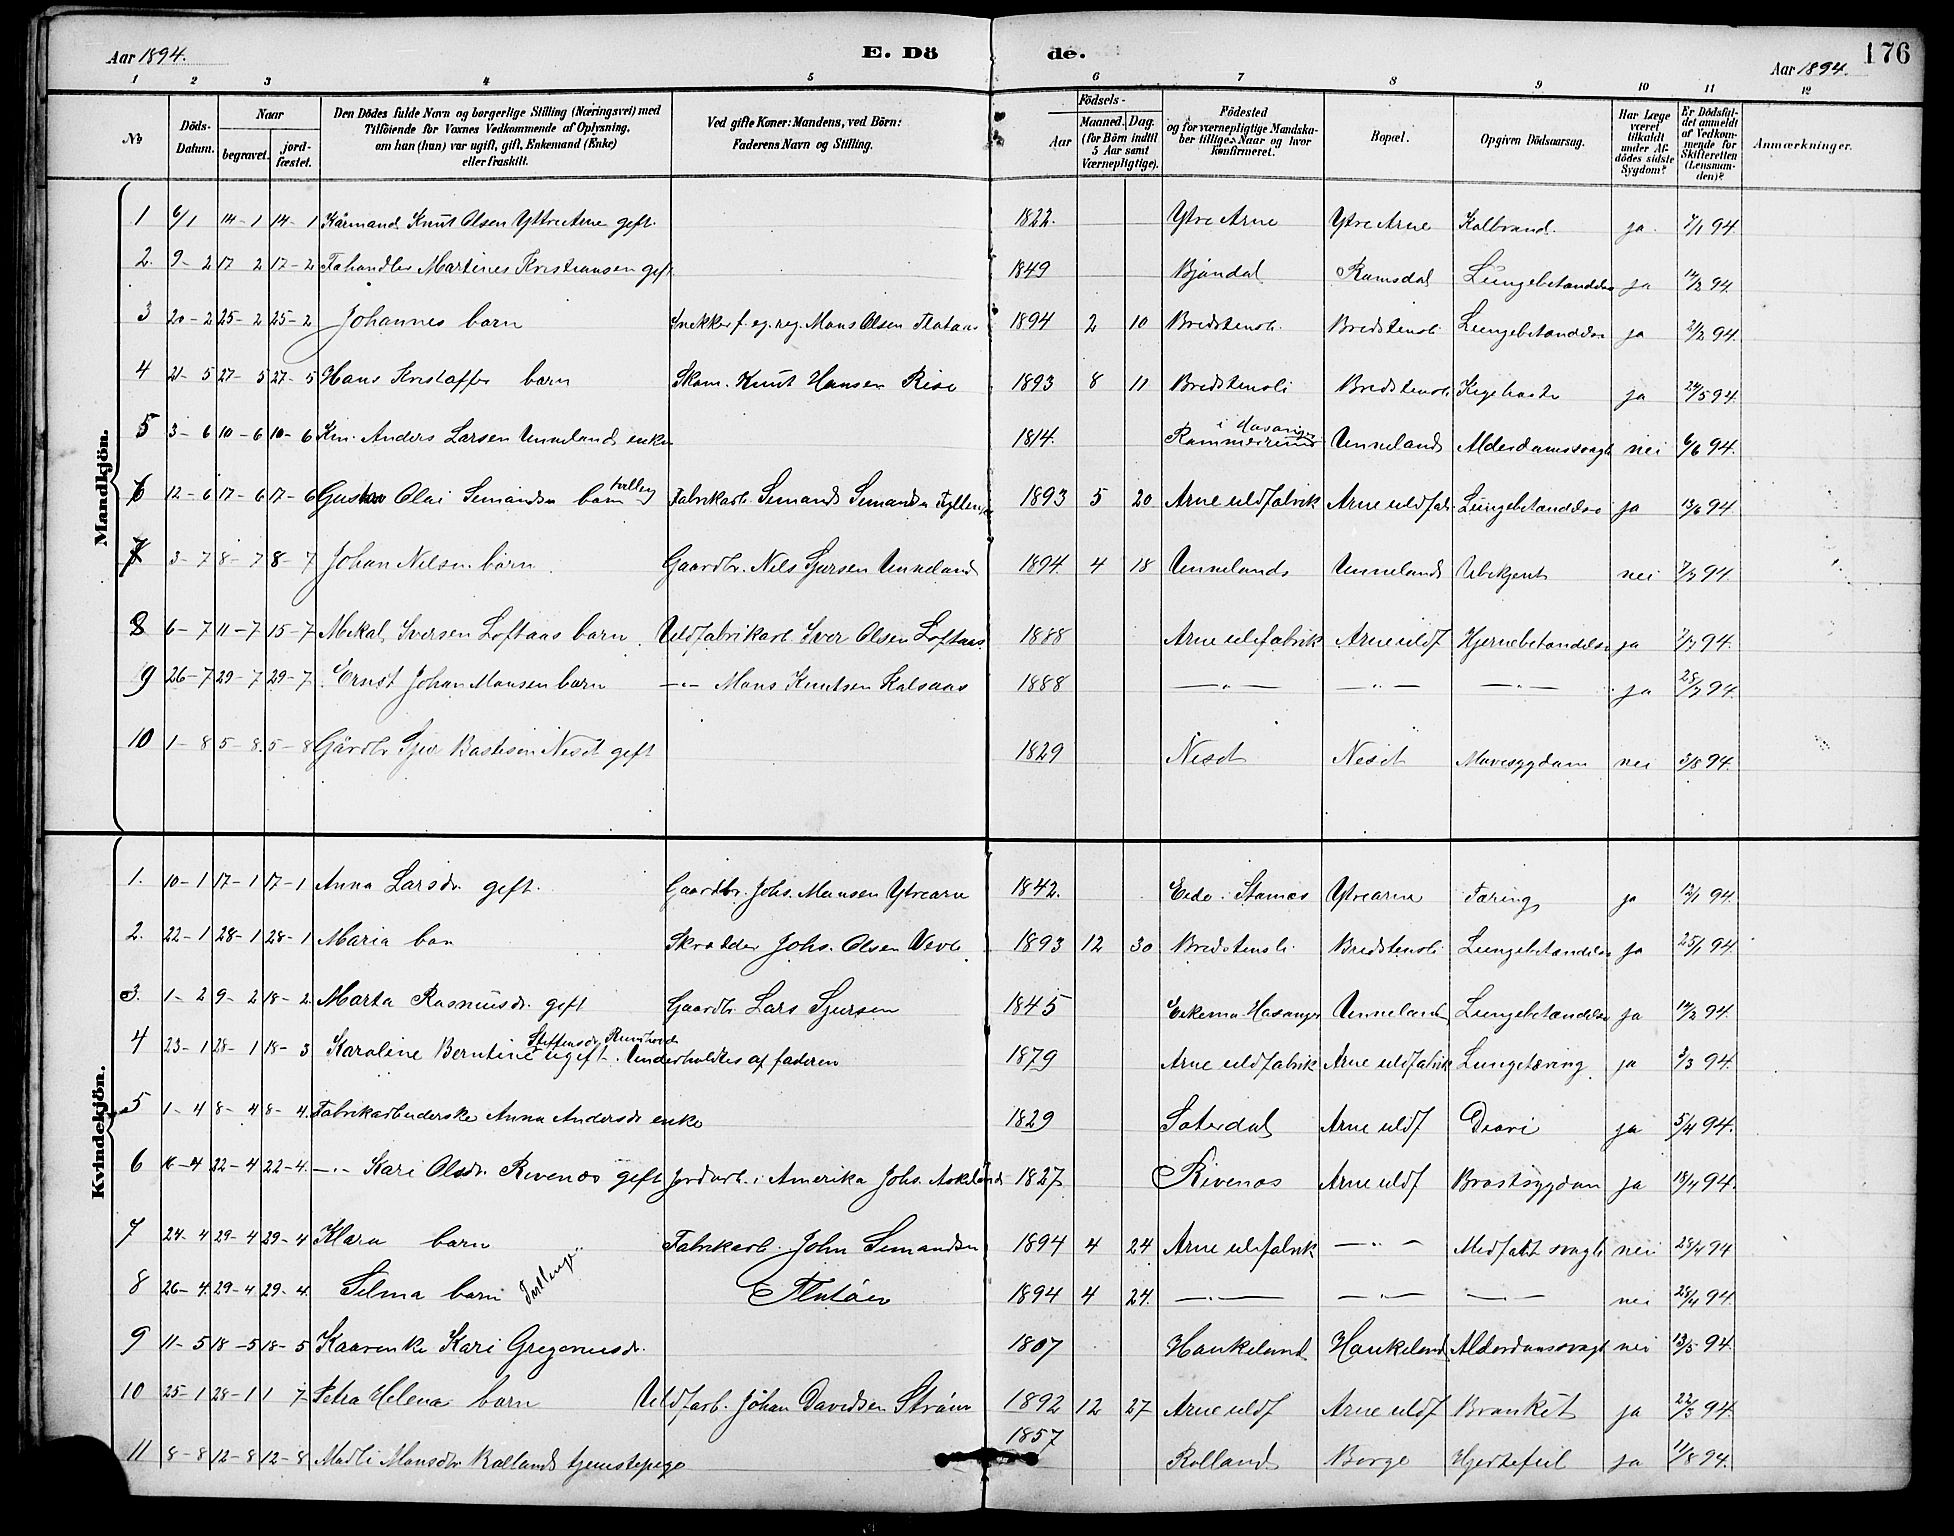 Aar 1894. E. Dö de. Aar 1894. 176
1 2 3 4 5 6 7 8 9 10 11 12
№ Döds-Datum. Naar begravet. jordfæstet. Den Dödes fulde Navn og borgerlige Stilling (Næringsvei) med Tilföiende for Voxnes Vedkommende af Oplysning, om han (hun) var ugift, gift, Enkemand (Enke) eller fraskilt. Ved gifte Koner: Mandens, ved Börn: Faderens Navn og Stilling. Födsels- Aar Maaned. Dag. (for Börn indtil 5 Aar samt Værnepligtige). Födested og for værnepligtige Mandskaber tillige: Naar og hvor konfirmeret. Bopæl. Opgiven Dödsaarsag. Har Læge været tilkaldt under Afdödes sidste Sygdom? Er Dödsfaldet anmeldt af Vedkommende for Skifteretten (Lensmanden)? Anmærkninger.
Mandkjön.
1 6/1 14-1 14-1 Kårmand Knut Olsen Yttre Arne gift. 1822. Ytre Arne Ytre Arne Kolbrand. ja. 7/1 94.
2. 9-2 17 2 17-2 Martines Kristiansen gift 1849 Bjøndal Ramsdal Lungebetændelse ja 12/2 94.
3 20-2 25-2 25-2 Johannes barn Snekker f. eg. reg. Mons Olsen 1894 2 10 Bredstensli. Bredstensli. Lungebetændelse ja 2/2 94.
4 21-5 27-5 27-5 Hans Kristoffer barn Skom. Knut Hansen Rise 1893 8 11 Bredstensli Bredstensli Kighoste ja 24/5 94.
5 3-6 10-6 10-6 Km. Anders Larsen Unneland enkem 1814. i Hosanger Unneland Alderdomssvagh nei 6/6 94.
6 12-6 17-6 17-6 Gustav Olai Simondsen barn tvilling Fabrikarb. Simond Simondsen 1893 5 20 Arne uldfabrik Arne uldfab Lungebetændelse ja 13/6 94
7 3-7 8-7 8-7 Johan Nilsen barn. Gaardbr. Nils Sjursen Unneland 1894. 4 18 Unneland Unneland Ubekjent nei 7/7 94.
8 6-7 11-7 15-7 Mikal Iversen Loftaas barn. Uldfabrikarb. Iver Olsen Loftaas. 1888 Arne uldfabrik Arne uldf Hjernebetændelse ja 7/7 94.
9 26-7 29-7 29-7. Ernst Johan Monsen barn -"- Mons Knutsen Kalsaas 1888 -"- -"- -"- ja 28/7 94.
10 1-8 5-8. 5-8 Gårdbr Sjur Bastesen Neset gift 1829 Neset Neset Mavesygdom nei 3/8 94.
Kvindekjön.
1. 10-1 17-1 17-1 Anna Larsdr. gift. Gaardbr. Johs. Monsen Ytrearne 1842. Eide i Stamnes Ytrearne Tæring ja 12/1 94.
2. 22-1 28-1 28-1 Maria barn Skrædder Johs. Olsen 1893 12 30 Bredstensli. Bredstensli. Lungebetændelse ja 25/1 94.
3. 1-2 9-2 18-2. Marta Rasmusdr. gift Gaardbr. Lars Sjursen 1845 Hosanger Unneland Lungebetændelse ja 12/2 94.
4 23-1 28-1 18-3 Karoline Berntine Steffensdr. ugift. Underholdtes af faderen 1879 Arne uldfabrik Arne uldfabrik Lungetæring ja 3/3 94.
5 1-4 8-4 8-4. Fabrikarbeiderske Anna Andersdr enke 1829 Sæterdal Arne uldf ja 5/4 94.
6 16-4 22-4 22-4. -"- Kari Olsdr. Rivenæs gift Jordarb. i Amerika Johs. Askeland 1827 Rivenæs Arne uldf Brystsygdom ja 18/4 94.
7 24-4 29-4 29-4 Klara barn Fabrikarb. John Simondsen 1894 4 24 Arne uldfabrik -"- Medfødt svagh nei 28/4 94
8 26-4. 29-4 29-4. Selma barn Tvillinger Flatøen 1894 4 24. -"- -"- -"- nei 28/4 94.
9 11-5 18-5 18-5 Kaarenke Kari Gregoriusdr. 1807 Haukeland Haukeland Alderdomssvagh nei 13/5 94.
10 25-1 28-1 1 7- Petra Helena barn Uldfarb. Johan Davidsen Strøm 1892 12 27 Arne uldf Arne uldf Bronkit ja 22/3 94.
11 8-8 12-8 12-8 Madli Monsdtr. Rolland tjenstepige 1857 Rolland Borge Hjertefeil ja 11/8 94.